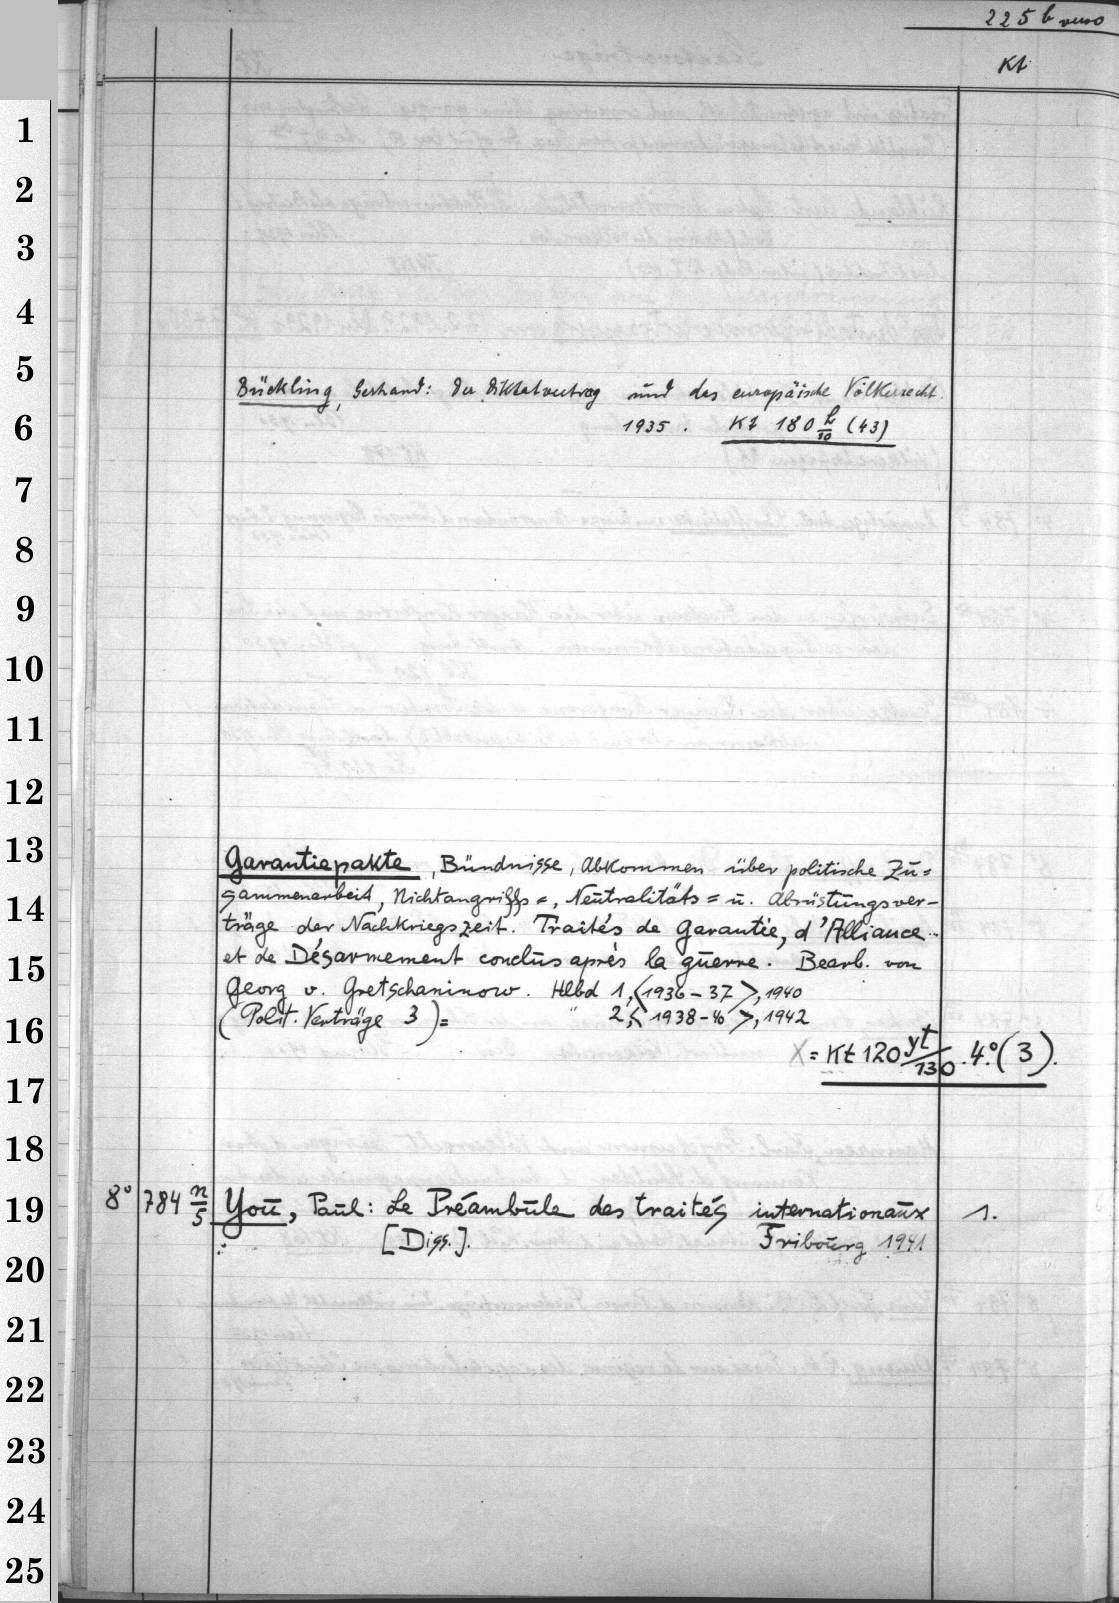 225 b verso
Kt
1
2
3
4
5
Bückling, Gerhard: Der Diktatvertrag und das europäische Völkerrecht.
6
1935. Kt 180 h/10 (43)
7
8
9
10
11
12
13
Garantiepakte, Bündnisse, Abkommen über politische Zu=
14
sammenarbeit, Nichtangriffs=, Neutralitäts= u. Abrüstungsver-
träge der Nachkriegszeit. Traités de Garantie, d'Alliance
15
et de Désarmement conclus après la guerre. Bearb. von
Georg v. Gretschaninow. Hlbd 1, <1936-37>, 1940
16
(Polit. Verträge 3)= " 2, <1938-40>, 1942
X = Kt 120 yt/130 .4.°(3).
17
18
19
8° 784 n/5 Yoū, Paūl: Le Préambūle des traités internationaūx 1.
[Diss.]. Friboūrg 1941
20
21
22
23
24
25